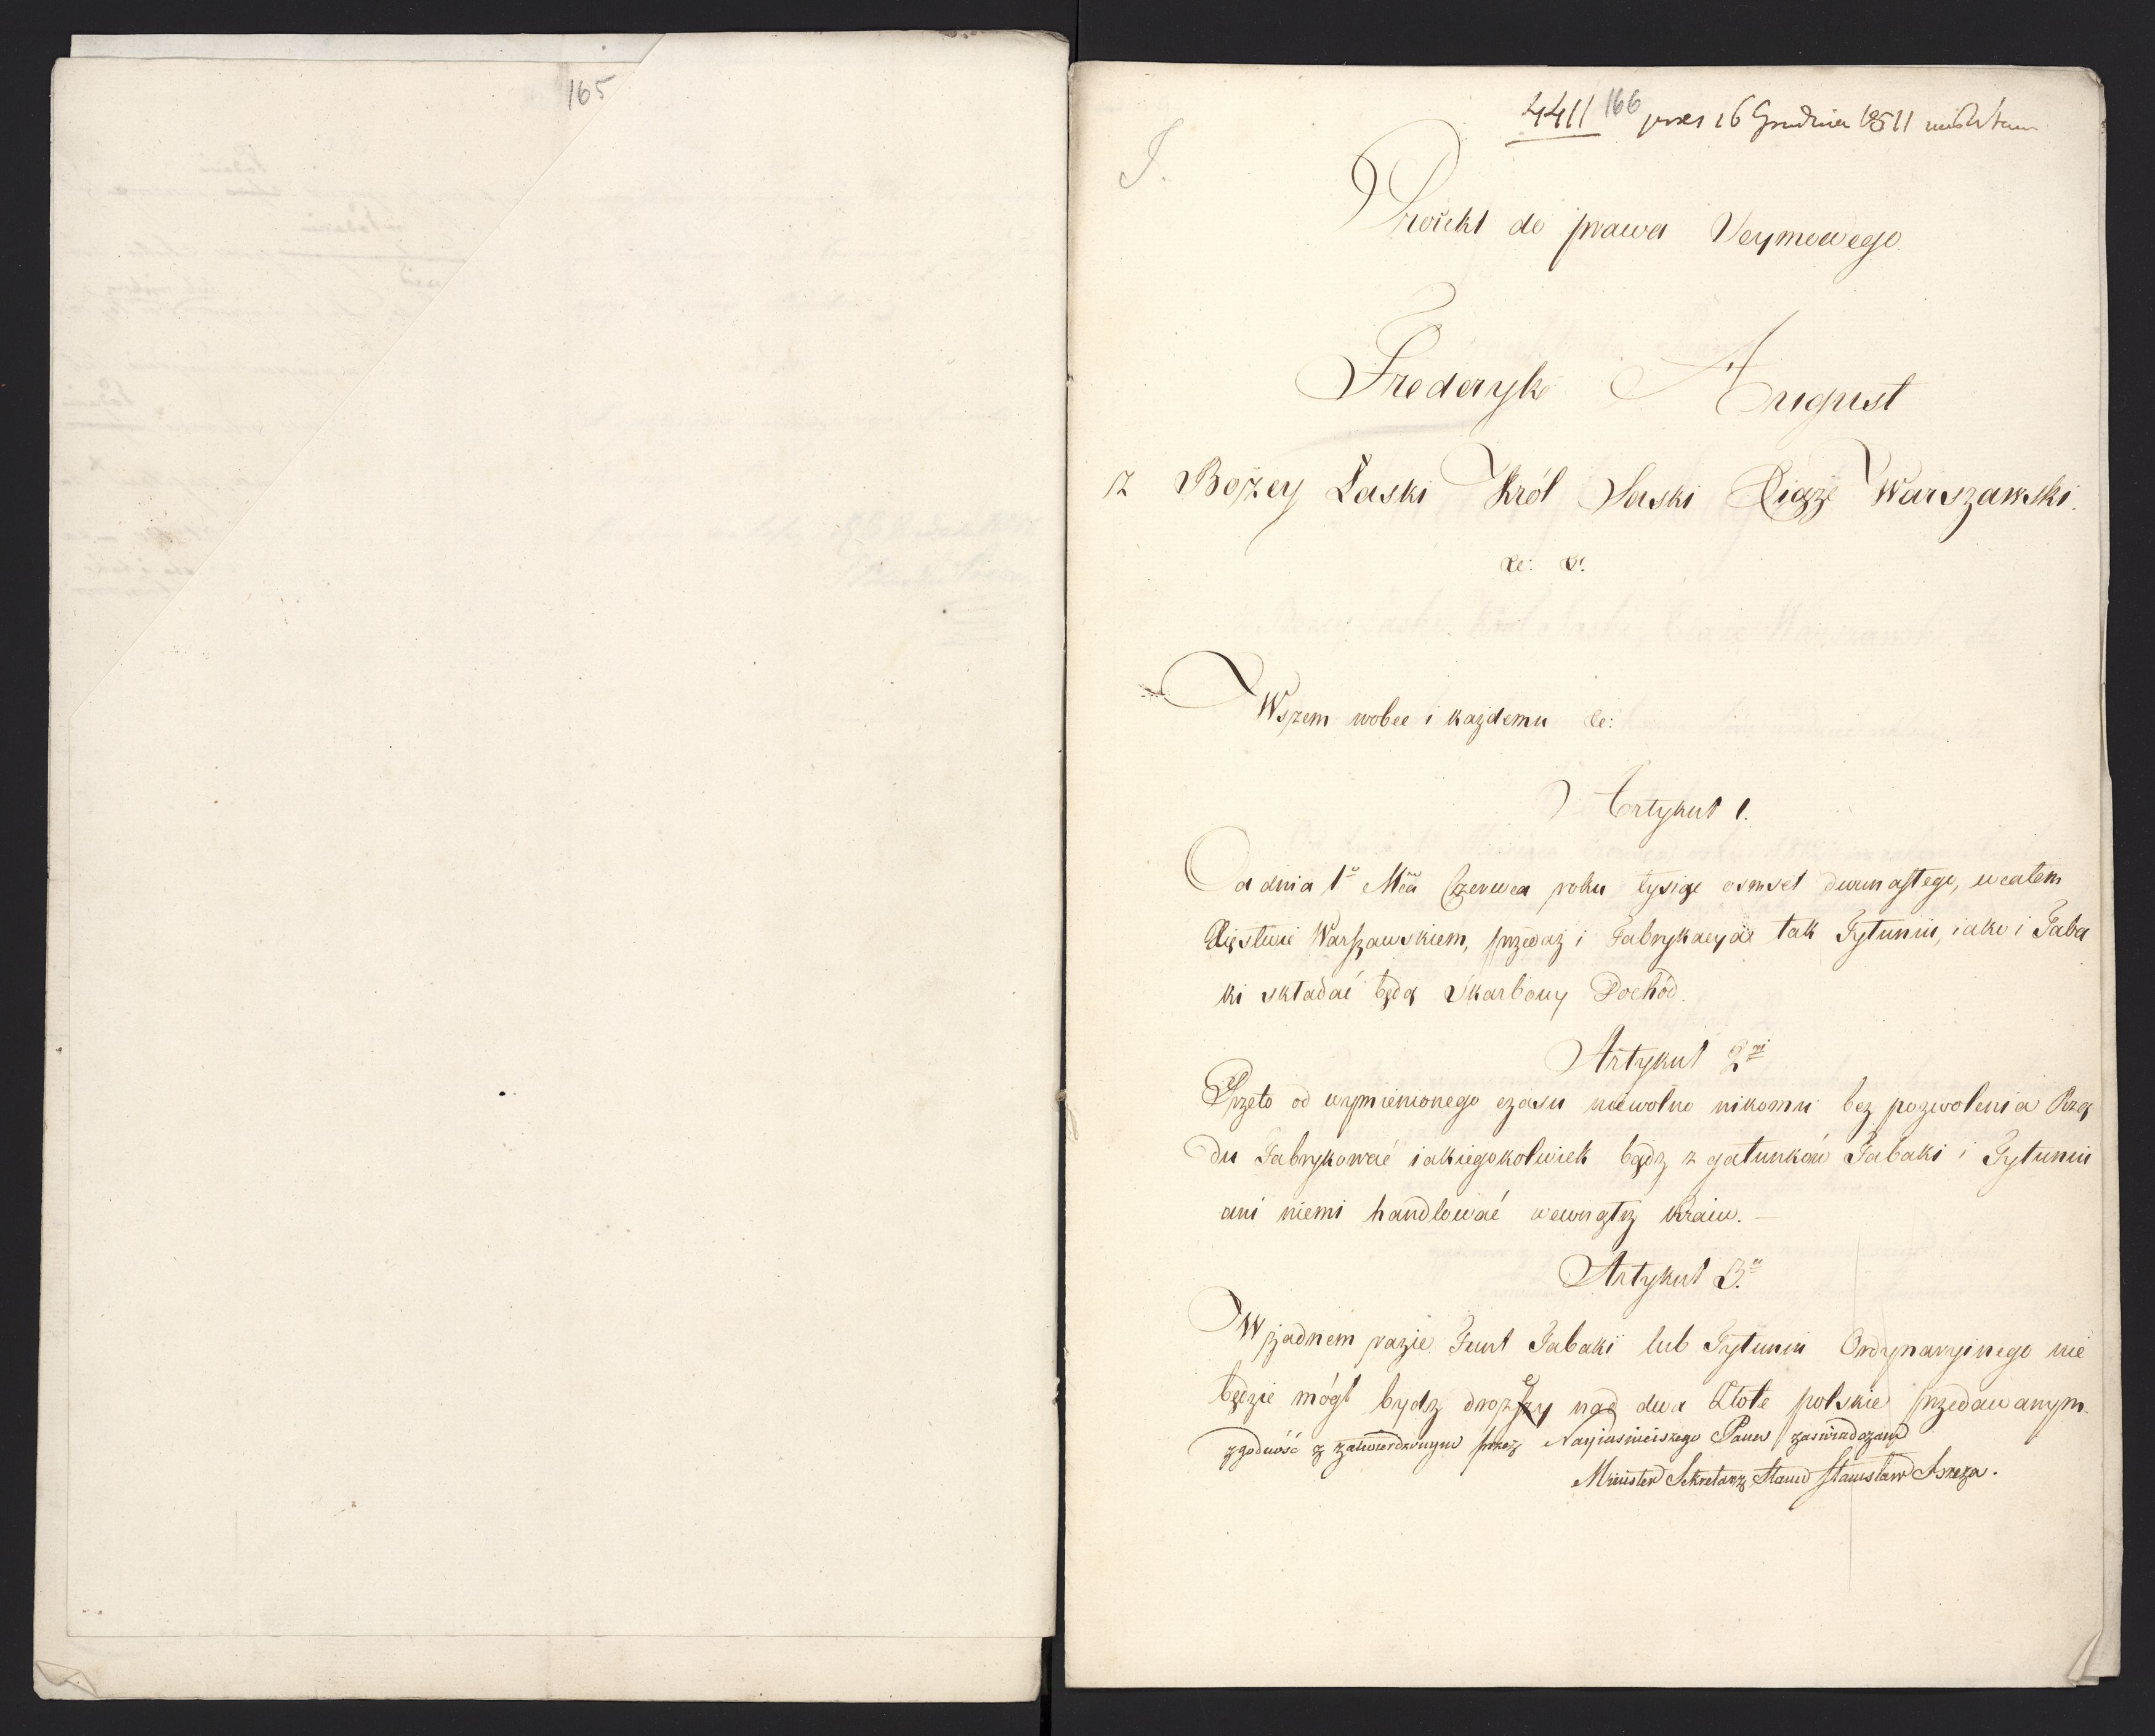 165
4411 166 prés 16 Grudnia 1811
I.
Proiekt do prawa Seymowego
Frederyk August
z Bożey Łaski Król Saski Xiąże Warszawski.
&c: &c:
Wszem wobec i każdemu &c:
Artykuł 1.
Od dnia 1o Mca Czerwca roku tysiąc osmset dwunastego, w całem
Xięstwie Warszawskiem, przedaż i Fabrykacya tak Tytuniu, iako i Taba
ki składać będą Skarbowy Dochód.
Artykuł 2gi
Przeto od wymienionego czasu niewolno nikomu bez pozwolenia Rzą
du Fabrykować iakiegokolwiek bądz z gatunków Tabaki i Tytuniu
ani niemi handlować wewnątrz kraiu. —
Artykuł 3.o
W żadnem razie Funt Tabaki lub Tytuniu Ordynaryinego nie
będzie mógł bydz drożey nad dwa Złote polskie przedawanym.
zgodność z zatwierdzonym przez Nayiaśnieiszego Pana zaświadczam
Minister Sekretarz Stanu Stanisław Breza.